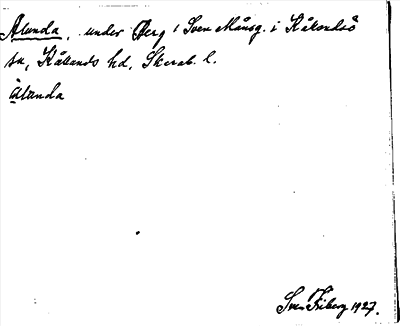 Ålunda, under Berg 1 Sven Månsg. i Kålandsö
sn, Kållands hd, Skarab. l.
åˋlunda
Sven Friberg 1927.